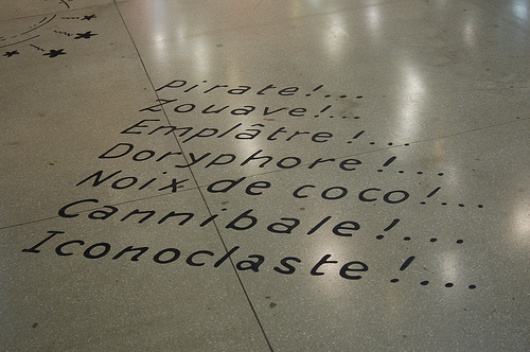 Pirate!...
Zouave!...
Emplâtre!...
Doryphore!...
Noix de coco!...
Cannibale!...
Iconoclaste!...